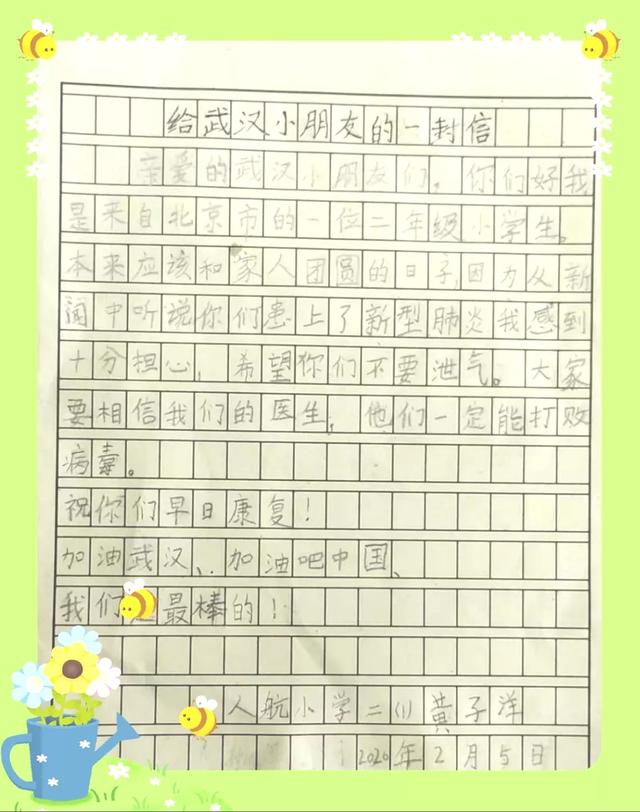 给武汉小朋友的一封信
亲爱的武汉小朋友们，你们好我
是来自北京市的一位二年级小学生。
本来应该和家人团圆的日子,因为从新
闻中听说你们患上了新型肺炎我感到
十分担心，希望你们不要泄气。大家
要相信我们的医生，他们一定能打败
病毒。
祝你们早日康复！
加油武汉、加油吧中国、
我们最棒的！
人航小学二(1)黄子洋
2020年2月5日